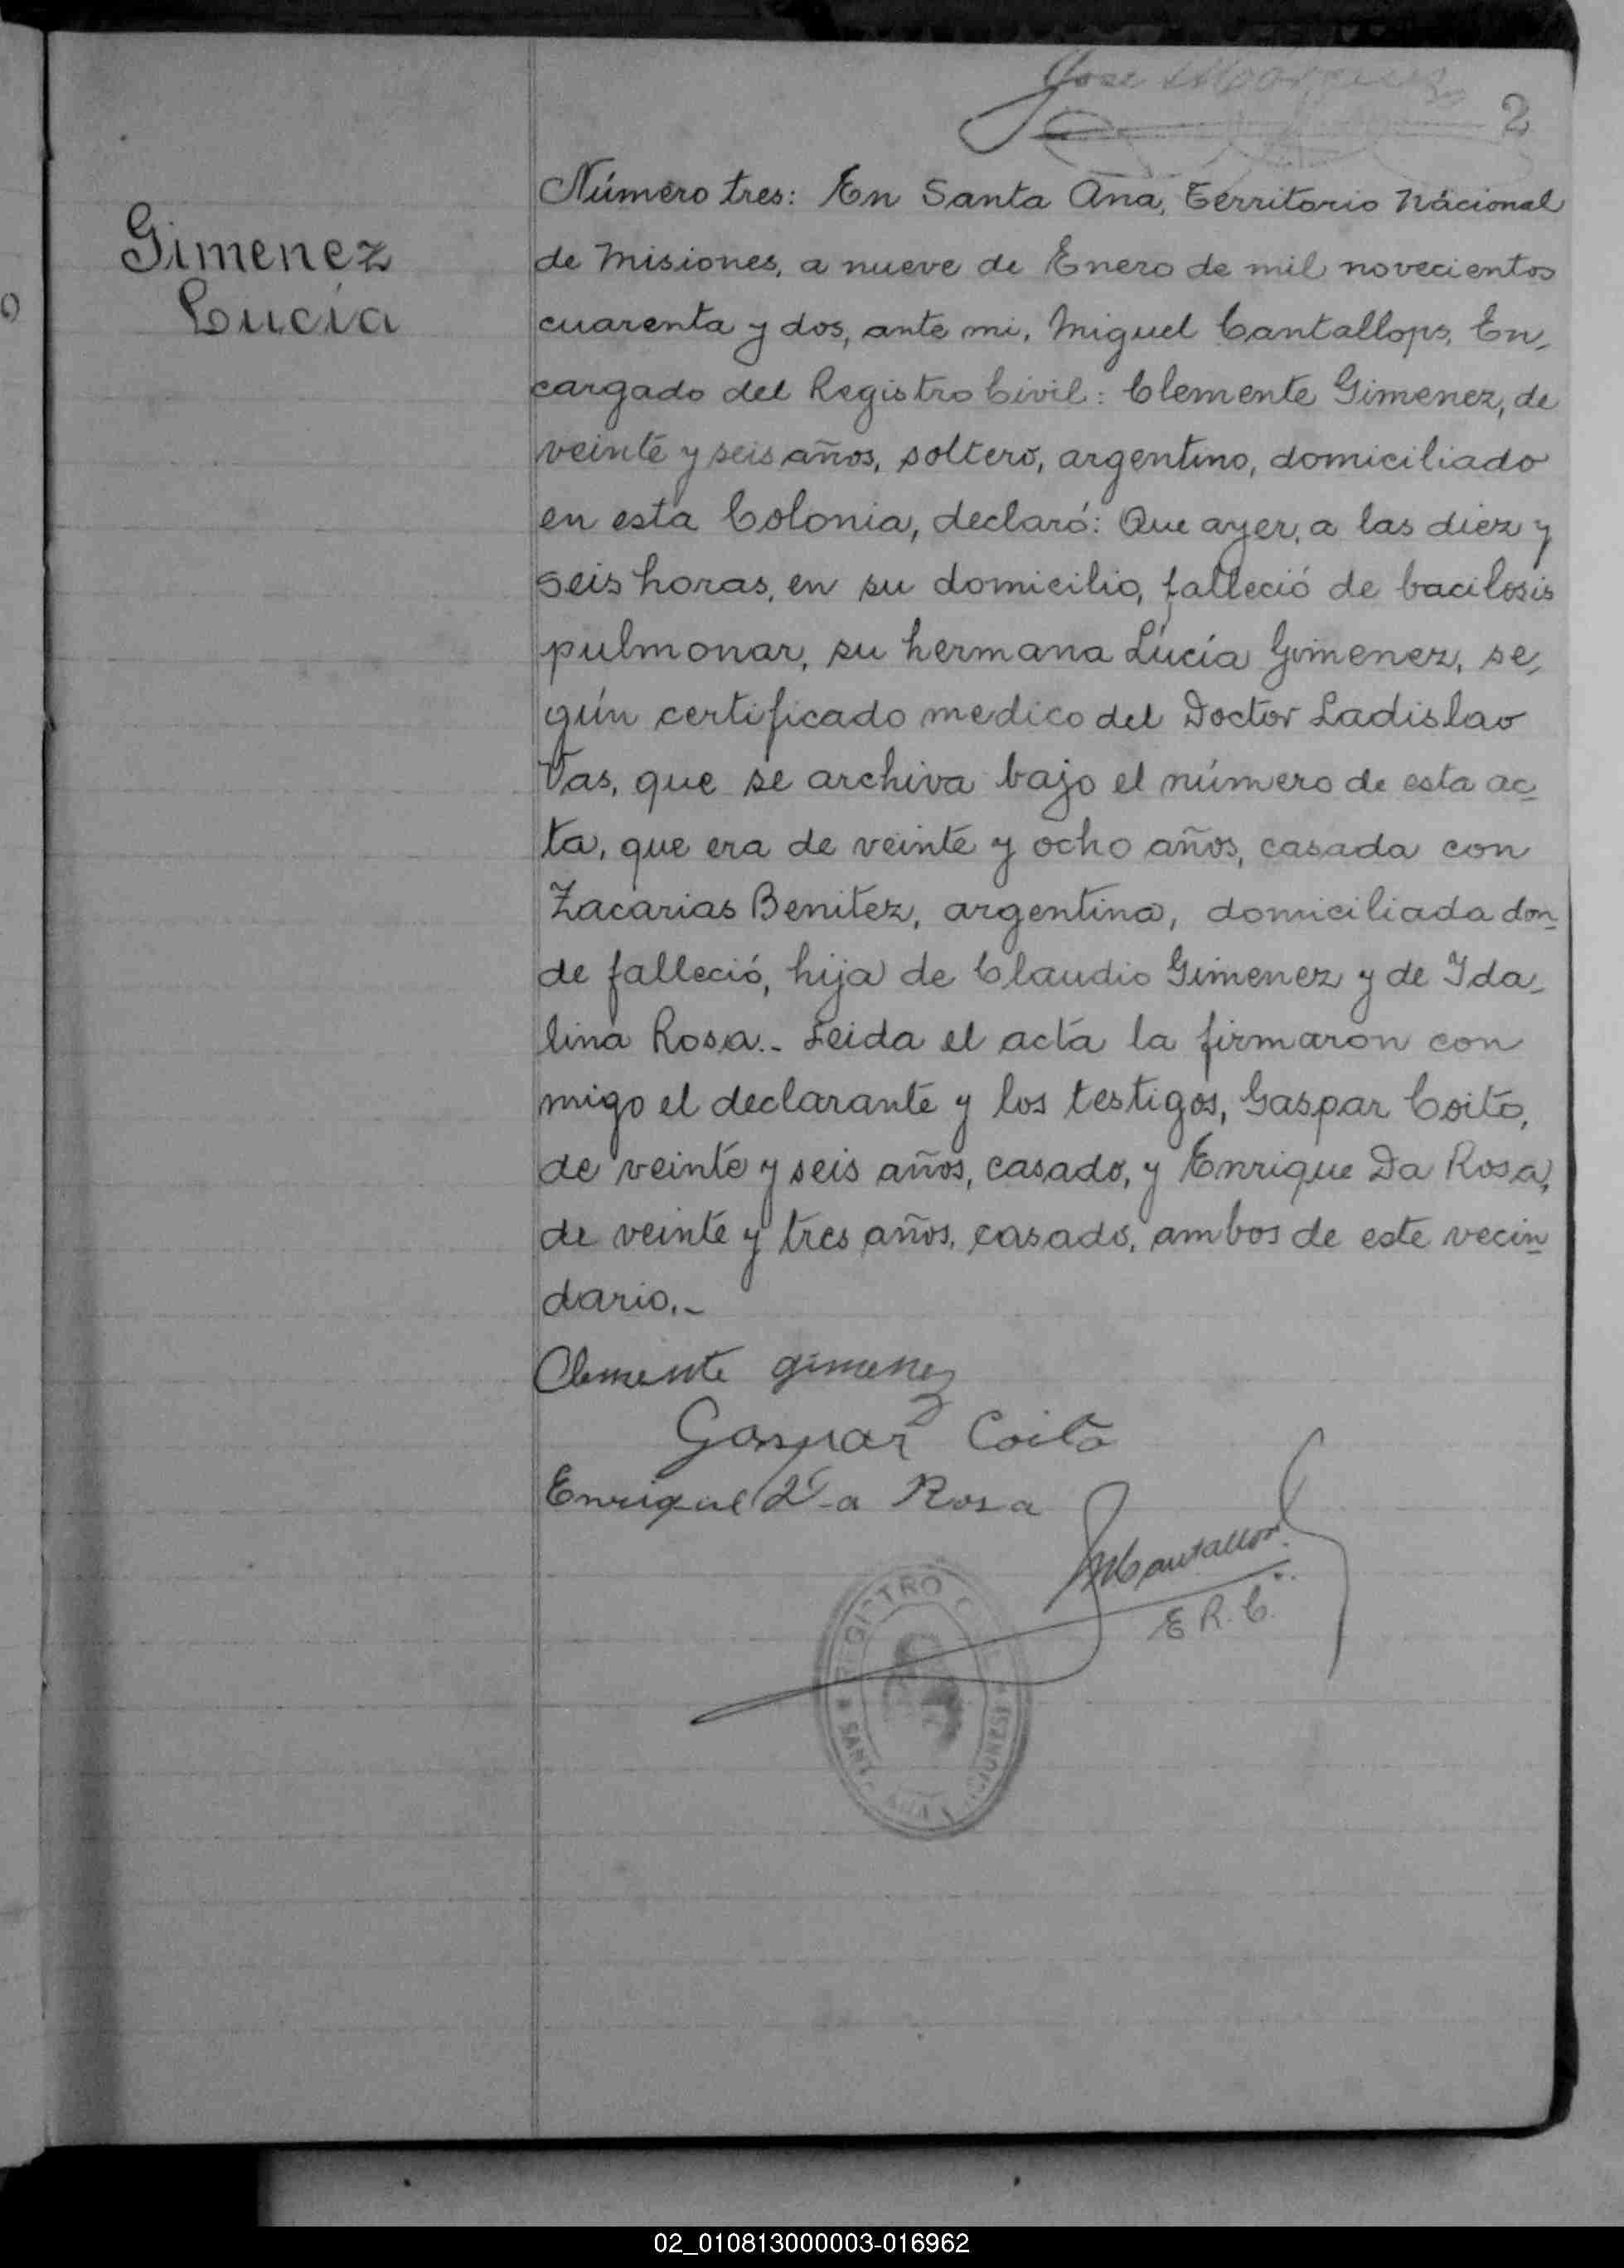 Jose
2
Gimenez
Lucía
Número tres: En Santa Ana, Territorio Nacional
de Misiones, a nueve de Enero de mil novecientos
cuarenta y dos, ante mi, Miguel Cantallops, En-
cargado del Registro Civil: Clemente Gimenez, de
veinte y seis años, soltero, argentino, domiciliado
en esta Colonia, declaró: Que ayer, a las diez y
seis horas, en su domicilio, falleció de bacilosis
pulmonar, su hermana Lucía Gimenez, se-
gún certificado medico del Doctor Ladislao
Vas, que se archiva bajo el número de esta ac-
ta, que era de veinte y ocho años, casada con
Zacarias Benitez, argentina, domiciliada don-
de falleció, hija de Claudio Gimenez y de Ida-
lina Rosa.- Leida el acta la firmaron con
migo el declarante y los testigos, Gaspar Coito,
de veinte y seis años, casado, y Enrique Da Rosa,
de veinte y tres años, casado, ambos de este vecin-
dario.-
Clemente gimenez
Gaspar Coito
Enrique D-a Rosa
MCantallops
E R. C.
REGISTRO CIVIL
SANTA ANA MISIONES
02_010813000003-016962